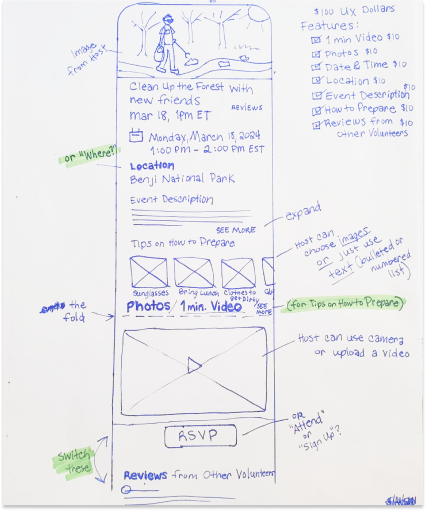 $100 UX Dollars
Features:
1 min Video $10
Photos $10
Date & Time $10
Location $10
Event Description $10
How to Prepare $10
Reviews from $10
Other Volunteers
image
from Host
Clean Up the Forest with
new friends
REVIEWS
mar 18, 1pm ET
Monday, March 18, 2024
1:00 PM - 2:00 PM EST
or "Where?"
Location
Benji National Park
Event Description
SEE MORE
expand
Tips on How to Prepare
Host can
choose images
or just use
text (bulleted or
numbered
list)
Sunglasses
Bring Lunch
Clothes to
get Dirty
Photos / 1 min. Video
SEE
more
(for Tips on How to Prepare)
the
fold
Host can use camera
or upload a video
RSVP
or
"Attend"
or
"Sign Up"?
Switch
these
Reviews from Other Volunteers